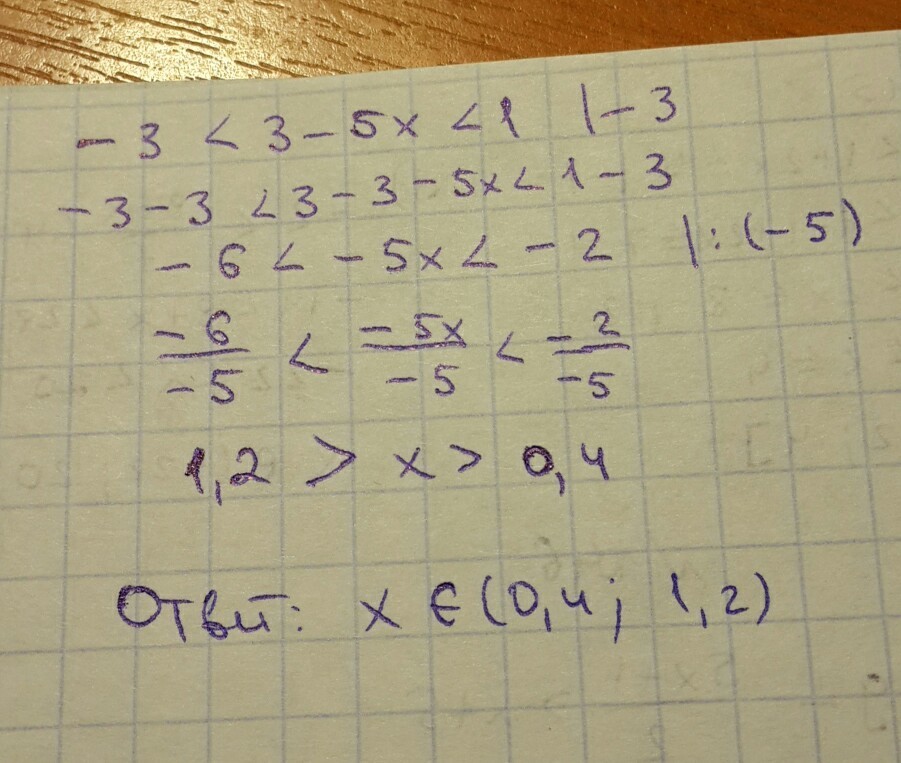 -3 < 3 - 5x < 1 |-3
-3-3 < 3-3-5x < 1-3
-6 < -5x < -2 |:(-5)
-6/-5 < -5x/-5 < -2/-5
1,2 > x > 0,4
Ответ: x ∈ (0,4; 1,2)